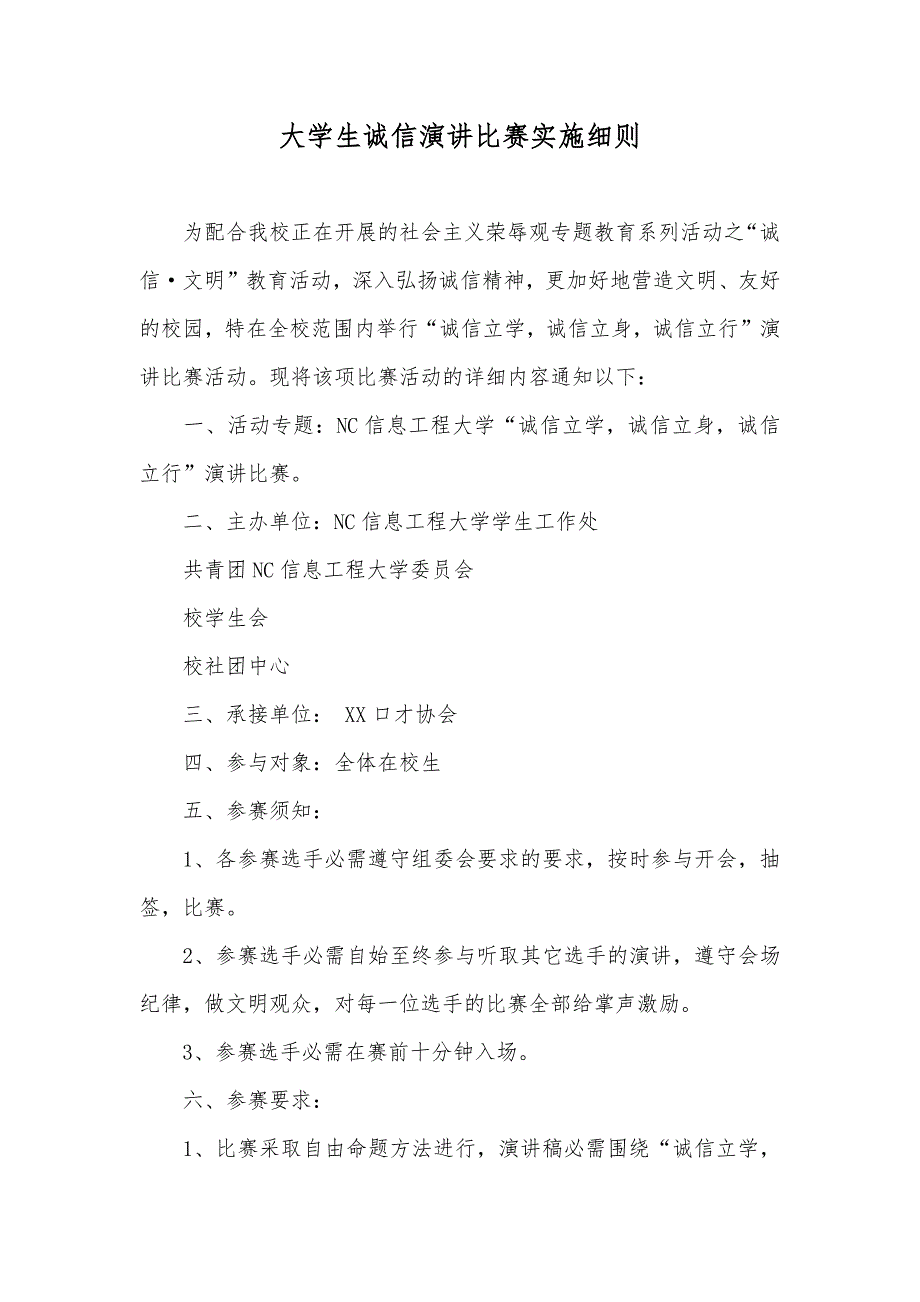 大学生诚信演讲比赛实施细则
为配合我校正在开展的社会主义荣辱观专题教育系列活动之“诚
信·文明”教育活动，深入弘扬诚信精神，更加好地营造文明、友好
的校园，特在全校范围内举行“诚信立学，诚信立身，诚信立行”演
讲比赛活动。现将该项比赛活动的详细内容通知以下：
一、活动专题：NC 信息工程大学“诚信立学，诚信立身，诚信
立行”演讲比赛。
二、主办单位：NC 信息工程大学学生工作处
共青团 NC 信息工程大学委员会
校学生会
校社团中心
三、承接单位： XX 口才协会
四、参与对象：全体在校生
五、参赛须知：
1、各参赛选手必需遵守组委会要求的要求，按时参与开会，抽
签，比赛。
2、参赛选手必需自始至终参与听取其它选手的演讲，遵守会场
纪律，做文明观众，对每一位选手的比赛全部给掌声激励。
3、参赛选手必需在赛前十分钟入场。
六、参赛要求：
1、比赛采取自由命题方法进行，演讲稿必需围绕“诚信立学，